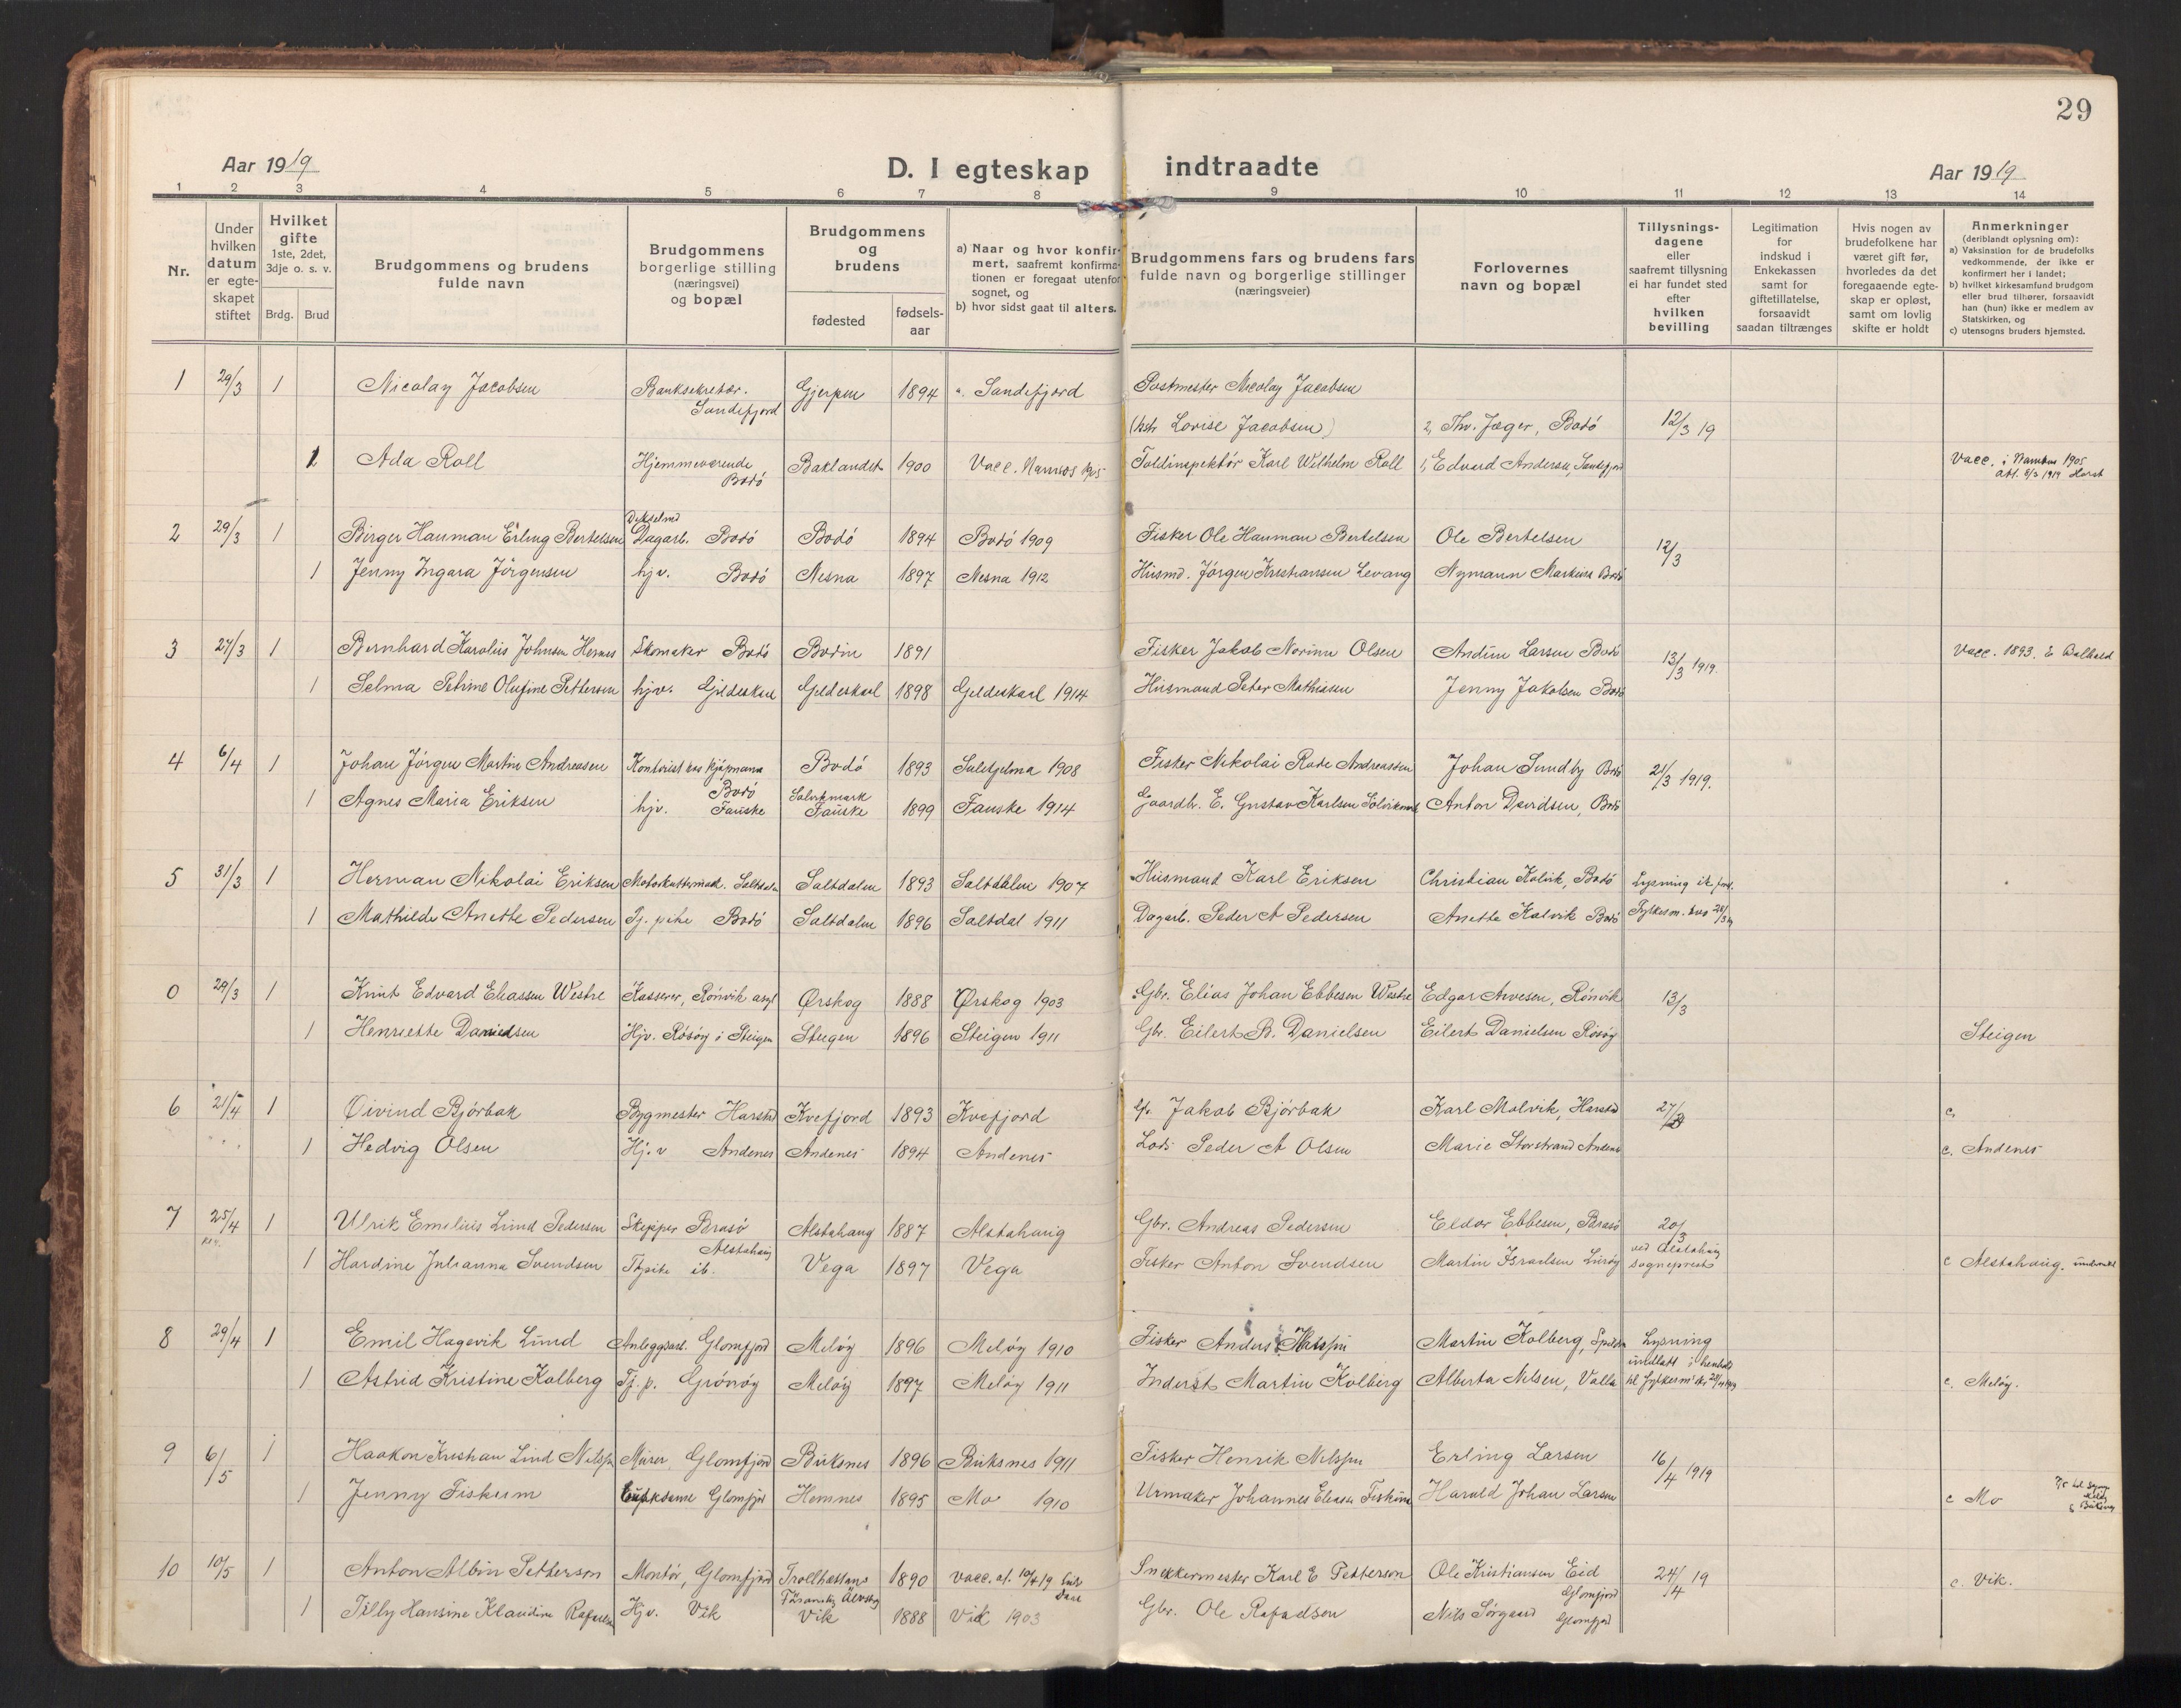 29
Aar 1919
D. I egteskap indtraadte
Aar 1919
1 2 3 4 5 6 7 8 9 10 11 12 13 14
Nr.
Under hvilken datum er egteskapet stiftet
Hvilket gifte 1ste, 2det, 3dje o. s. v.
Brdg. Brud
Brudgommens og brudens fulde navn
Brudgommens borgerlige stilling (næringsvei) og bopæl
Brudgommens og brudens
fødested
fødsels-aar
a) Naar og hvor konfirmert, saafremt konfirmationen er foregaat utenfor sognet, og
b) hvor sidst gaat til alters.
Brudgommens fars og brudens fars fulde navn og borgerlige stillinger (næringsveier)
Forlovernes navn og bopæl
Tillysnings-dagene eller saafremt tillysning ei har fundet sted efter hvilken bevilling
Legitimation for indskud i Enkekassen samt for giftetillatelse, forsaavidt saadan tiltrænges
Hvis nogen av brudefolkene har været gift før, hvorledes da det foregaaende egteskap er opløst, samt om lovlig skifte er holdt
Anmerkninger (deriblandt oplysning om):
a) Vaksination for de brudefolks vedkommende, der ikke er konfirmert her i landet;
b) hvilket kirkesamfund brudgom eller brud tilhører, forsaavidt han (hun) ikke er medlem av Statskirken, og
c) utensogns bruders hjemsted.
1 29/3 1 Nicolay Jacobsen Banksekretær. Sandefjord Gjerpen 1894 a. Sandefjord Postmester Nicolay Jacobsen
(hstr Lovise Jacobsen) 2, Thv. Jæger, Bodö 12/3 19
1 Ada Roll Hjemmeværende Bodö Baklandet 1900 Vacc. Namsos 1905 Toldinspektör Karl Wilhelm Roll 1, Edvard Andersen, Sandefjord Vacc. i Namsos 1905
2 29/3 1 Birger Hauman Erling Bertelsen Dagarb. Bodö Bodö 1894 Bodö 1909 Fisker Ole Hauman Bertelsen Ole Bertelsen 12/3
1 Jenny Ingara Jörgensen hjv. Bodö Nesna 1897 Nesna 1912 Husmd. Jörgen Kristiansen Levang Nymann Markussen Bodö
3 27/3 1 Bernhard Karolius Johnsen Hernes Skomaker Bodö Bodin 1891 Fisker Jakob Norinu Olsen Andine Larsen Bodö 13/3 1919. Vacc. 1893.
1 Selma Petrine Olufine Pettersen hjv. Gildeskaal Gildeskaal 1898 Gildeskaal 1914 Husmand Peter Mathiasen Jenny Jakobsen Bodö
4 6/4 1 Johan Jörgen Martin Andreasen Kontorist hos kjöpmann Bodö Bodö 1893 Sulitjelma 1908 Fisker Nikolai Rade Andreassen Johan Sundby Bodö 21/3 1919.
1 Agnes Maria Eriksen hjv. Fauske Solvikmark Fauske 1899 Fauske 1914 Gaardbr. E. Gustav Karlsen Solvikmark Anton Davidsen, Bodö
5 31/3 1 Herman Nikolai Eriksen Motorkuttermask. Saltdalen Saltdalen 1893 Saltdalen 1907 Husmand Karl Eriksen Christian Kalvik, Bodö Lysning ik. fore.
1 Mathilde Anette Pedersen Tj. pike Bodö Saltdalen 1896 Saltdal 1911 Dagarb. Peder A Pedersen Anette Kalvik Bodö Fylkesm. bev 28/3
0 29/3 1 Knut Edvard Eliassen Westre Kasserer, Rönvik asyl Ørskog 1888 Ørskog 1903 Gbr. Elias Johan Ebbesen Westre Edgar Arvesen, Rönvik 13/3
1 Henriette Danielsen Hjv. Rösöy i Steigen Steigen 1896 Steigen 1911 Gbr. Eilert B. Danielsen Eilert Danielsen Rösöy Steigen
6 21/4 1 Øivind Bjórbak Bygmester Harstad Kvefjord 1893 Kvefjord Jakob Bjórbak Karl Molvik, Harstad 27/3 c.
1 Hedvig Olsen Hj.v Andenes Andenes 1894 Andenes Lods Peder A Olsen Marie Storstrand Andenes c. Andenes
7 25/4 1 Ulrik Emelius Lund Pedersen Skipper Brasö Alstahaug Alstahaug 1887 Alstahaug Gbr. Andreas Pedersen Eldor Ebbesen, Brasö 20/3
1 Hardine Julianna Svendsen Tjpike ib. Vega 1897 Vega Fisker Anton Svendsen Martin Israelsen Luröy ved Alstahaug sogneprest c Alstahaug.
8 29/4 1 Emil Hagevik Lund Anleggsarb. Glomfjord Melöy 1896 Melöy 1910 Fisker Anders Nilssen Martin Kolberg, Lysning undlatt i henhold
1 Astrid Kristine Kolberg Tj. p. Grónöy Melöy 1897 Melöy 1911 Inderst Martin Kolberg Alberta Nilsen, Valla til fylkesm c. Melöy.
9 6/5 1 Haakon Kristian Lind Nilssen Murer, Glomfjord Buksnes 1896 Buksnes 1911 Fisker Henrik Nilssen Erling Larsen 16/4 1919
1 Jenny Fiskum Glomfjord Hemnes 1895 Mo 1910 Urmaker Johannes Eliassen Fiskum Harald Johan Larsen c Mo
10 10/5 1 Anton Albin Petterson Montör, Glomfjord Trollhættans 1890 vacc. at. 10/4 19 Snekkermester Karl E Petterson Ole Kristiansen Eid Glomfjord 24/4 19 c. Vik.
1 Tilly Hansine Klaudine Rafaelsen Hjv. Vik Vik 1888 Vik 1903 Gbr. Ole Rafaelsen Nils Sörgaard Glomfjord